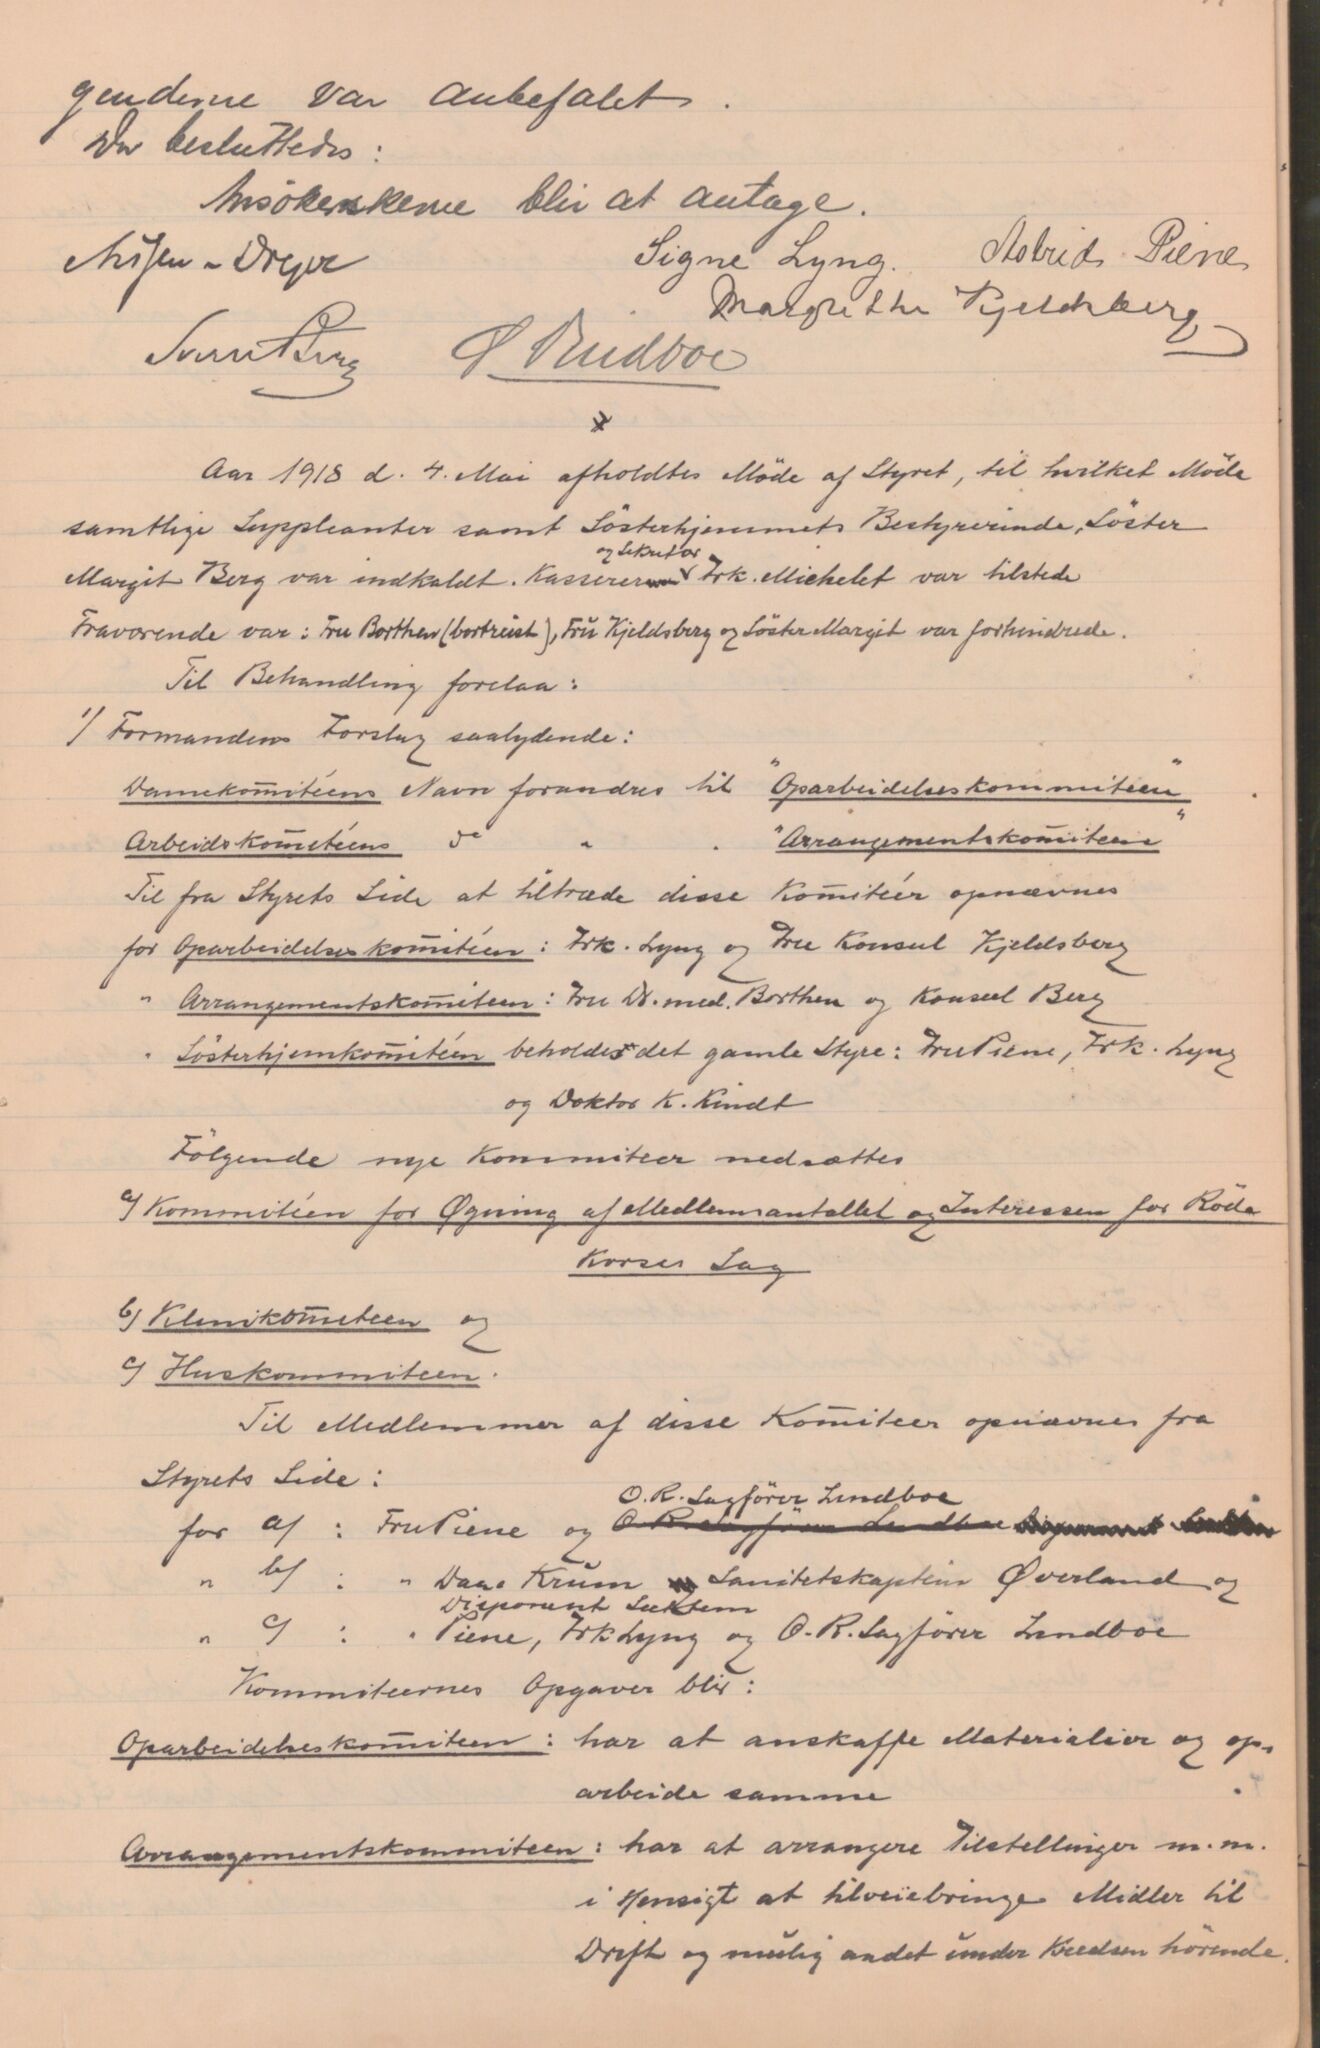 genderne var anbefalet.
Der besluttedes:
Ansökerskerne blir at antage.
Signe Lyng. Astrid Piene
Margrethe Kjeldsberg
Sverre Berg
Aar 1918 d. 4. Mai afholdtes Möde af Styret, til hvilket Möde
samtlige Suppleanter samt Sösterhjemmets Bestyrerinde, Söster
og Sekretær
Margit Berg var indkaldt. Kasserer Frk. Michelet var tilstede
Fraværende var: Fru Borthen (bortreist), Fru Kjeldsberg og Söster Margit var forhindrede.
Til Behandling forelaa:
1/ Formandens Forslag saalydende:
Damekom̅itéens Navn forandres til "Oparbeidelseskommiteen"
Arbeidskom̅itéens do " " "Arrangementskom̅iteen"
Til fra Styrets Side at tiltræde disse Kom̅itéer opnævnes
for Oparbeidelseskom̅itéen: Frk. Lyng og Fru Konsul Kjeldsberg
" Arrangementskom̅iteen: Fru Dr. med. Borthen og Konsul Berg
" Sösterhjemkom̅itéen beholdes det gamle Styre: Fru Piene, Frk. Lyng
og Doktor K. Kindt
Fölgende nye Kommiteer nedsættes
a/ Kommitéen for Øgning af Medlemsantallet og Interessen for Röde
Korses Sag
b/ Klinikkom̅iteen og
c/ Huskommiteen.
Til Medlemmer af disse Kom̅iteer opnævnes fra
Styrets Side:
O.R. Sagförer Lindboe
for a/ : Fru Piene og O.R. Sagförer Lindboe
" b/ : " Daae Krum Sanitetskaptein Øverland og
Disponent
" c/ : " Piene, Frk Lyng og O.R. Sagförer Lindboe
Kommiteernes Opgaver blir:
Oparbeidelseskom̅iteen: har at anskaffe Materialier og op-
arbeide samme
Arrangementskommiteen: har at arrangere Tilstellinger m.m.
i Hensigt at tilveiebringe Midler til
Drift og mulig andet under Kredsen hörende.